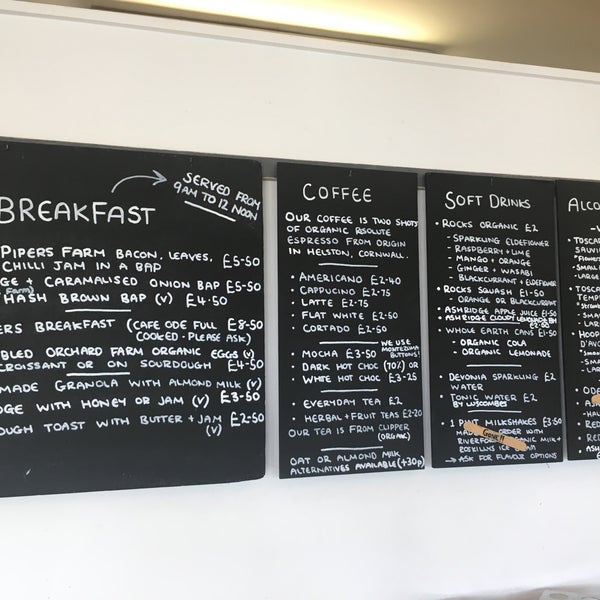 BREAKFAST
SERVED FROM
9AM TO 12 NOON
PIPERS FARM BACON, LEAVES, £5-50
CHILLI JAM IN A BAP
GE + CARAMALISED ONION BAP £5-50
Farm)
HASH BROWN BAP (V) £4-50
ERS BREAKFAST (CAFE ODE FULL £8-50
COOKED - PLEASE ASK)
BLED ORCHARD FARM ORGANIC EGGS (V)
CROISSANT OR ON SOURDOUGH £4-50
MADE GRANOLA WITH ALMOND MILK (V)
DGE WITH HONEY OR JAM (V) £3-50
OUGH TOAST WITH BUTTER + JAM £2-50
(V)
COFFEE
OUR COFFEE IS TWO SHOTS
OF ORGANIC RSOLUTE
ESPRESSO FROM ORIGIN
IN HELSTON, CORNWALL.
• AMERICANO £2-40
• CAPPUCINO £2-75
• LATTE £2-75
• FLAT WHITE £2-50
• CORTADO £2-50
WE USE
MONTEZUMA
BUTTONS!
• MOCHA £3-50
• DARK HOT CHOC (70%) OR
• WHITE HOT CHOC £3-25
• EVERYDAY TEA £2
• HERBAL + FRUIT TEAS £2-20
OUR TEA IS FROM CLIPPER
(ORGANIC)
OAT OR ALMOND MILK
ALTERNATIVES AVAILABLE (+30p)
SOFT DRINKS
• ROCKS ORGANIC £2
- SPARKLING ELDEFLOWER
- RASPBERRY + LIME
- MANGO + ORANGE
- GINGER + WASABI
- BLACKCURRANT + ELDEFLOWER
• ROCKS SQUASH £1-50
- ORANGE OR BLACKCURRANT
• ASHRIDGE APPLE JUICE £1-50
• ASHRIDGE CLOUDY LEMONADE
£2-50
• WHOLE EARTH CANS £1-50
• ORGANIC COLA
• ORGANIC LEMONADE
• DEVONIA SPARKLING £2
WATER
• TONIC WATER £2
BY LUSCOMBES
• 1 MILKSHAKES £3-50
ORDER WITH
ORGANIC MILK +
ROSKILLYS ICE
→ ASK FOR FLAVOUR OPTIONS
ALCO
• TOSCA
SAUVI
SMALL
LAR
• TOSCA
TEMP
SMA
LAR
• HOOP
D'AV
SMA
LAR
• OD
RED
RED
• ASH